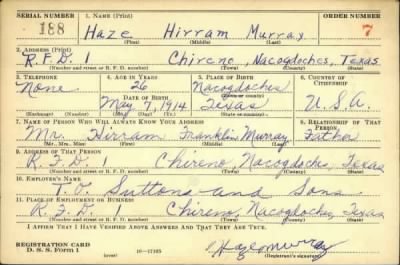 SERIAL NUMBER 1. NAME (Print) ORDER NUMBER
188 Haze Hirram Murray 7
(First) (Middle) (Last)
2. ADDRESS (Print)
R.F.D. 1 Chireno, Nacogdoches, Texas
(Number and street or R. F. D. number) (Town) (County) (State)
3. TELEPHONE 4. AGE IN YEARS 5. PLACE OF BIRTH 6. COUNTRY OF CITIZENSHIP
None 26 Nacogdoches
DATE OF BIRTH (Town or county)
May 7, 1914 Texas U.S.A.
(Exchange) (Number) (Mo.) (Day) (Yr.) (State or country)
7. NAME OF PERSON WHO WILL ALWAYS KNOW YOUR ADDRESS 8. RELATIONSHIP OF THAT PERSON
Mr. Hirram Franklin Murray Father
(Mr., Mrs., Miss) (First) (Middle) (Last)
9. ADDRESS OF THAT PERSON
R.F.D. 1 Chireno, Nacogdoches, Texas
(Number and street or R. F. D. number) (Town) (County) (State)
10. EMPLOYER'S NAME
Suttons and Sons
11. PLACE OF EMPLOYMENT OR BUSINESS
R.F.D. 1 Chireno, Nacogdoches, Texas
(Number and street or R. F. D. number) (Town) (County) (State)
I AFFIRM THAT I HAVE VERIFIED ABOVE ANSWERS AND THAT THEY ARE TRUE.
REGISTRATION CARD
D. S. S. Form 1 (over) Haze Murray
(Registrant's signature)